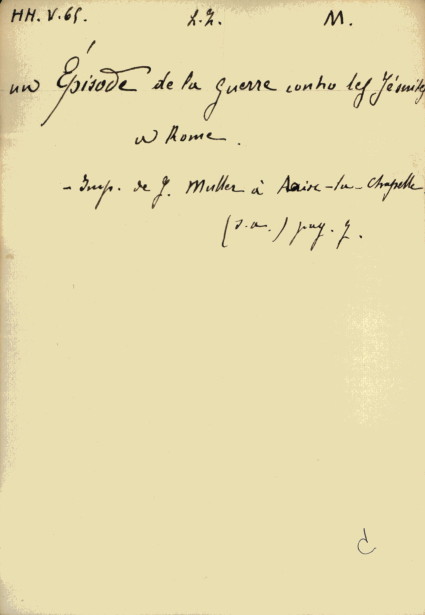 HH. V. 65. L. Z. M.
un Épisode de la guerre contro les Jésuites
a Rome.
- Imp. de J. Muller à Aaixe-la-Chapelle
(s.a.) pag. 7.